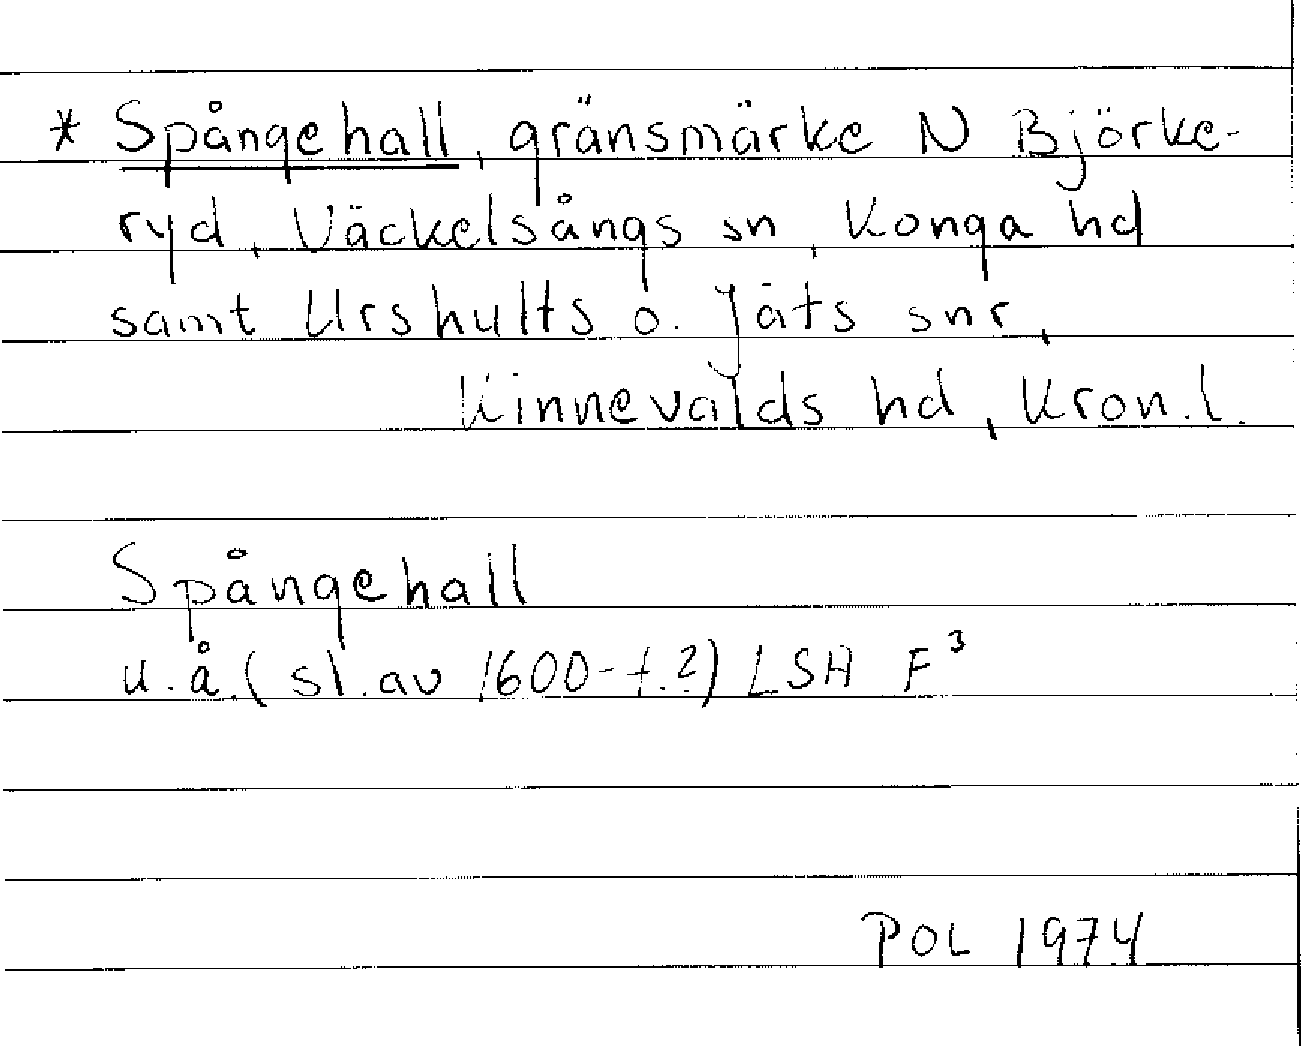 * Spångehall, gränsmärke N Björke-
ryd, Väckelsångs sn, Konga hd
samt Urshults o. Jäts snr,
Kinnevalds hd, Kron.l.
Spångehall
u.å. (sl. av 1600-t.?) LSH F³
POL 1974